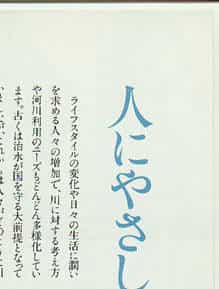 人にやさし
ライフスタイルの変化や日々の生活に潤い
を求める人々の増加で、川に対する考え方
や河川利用のニーズもどんどん多様化してい
ます。古くは治水が国を守る大前提となって